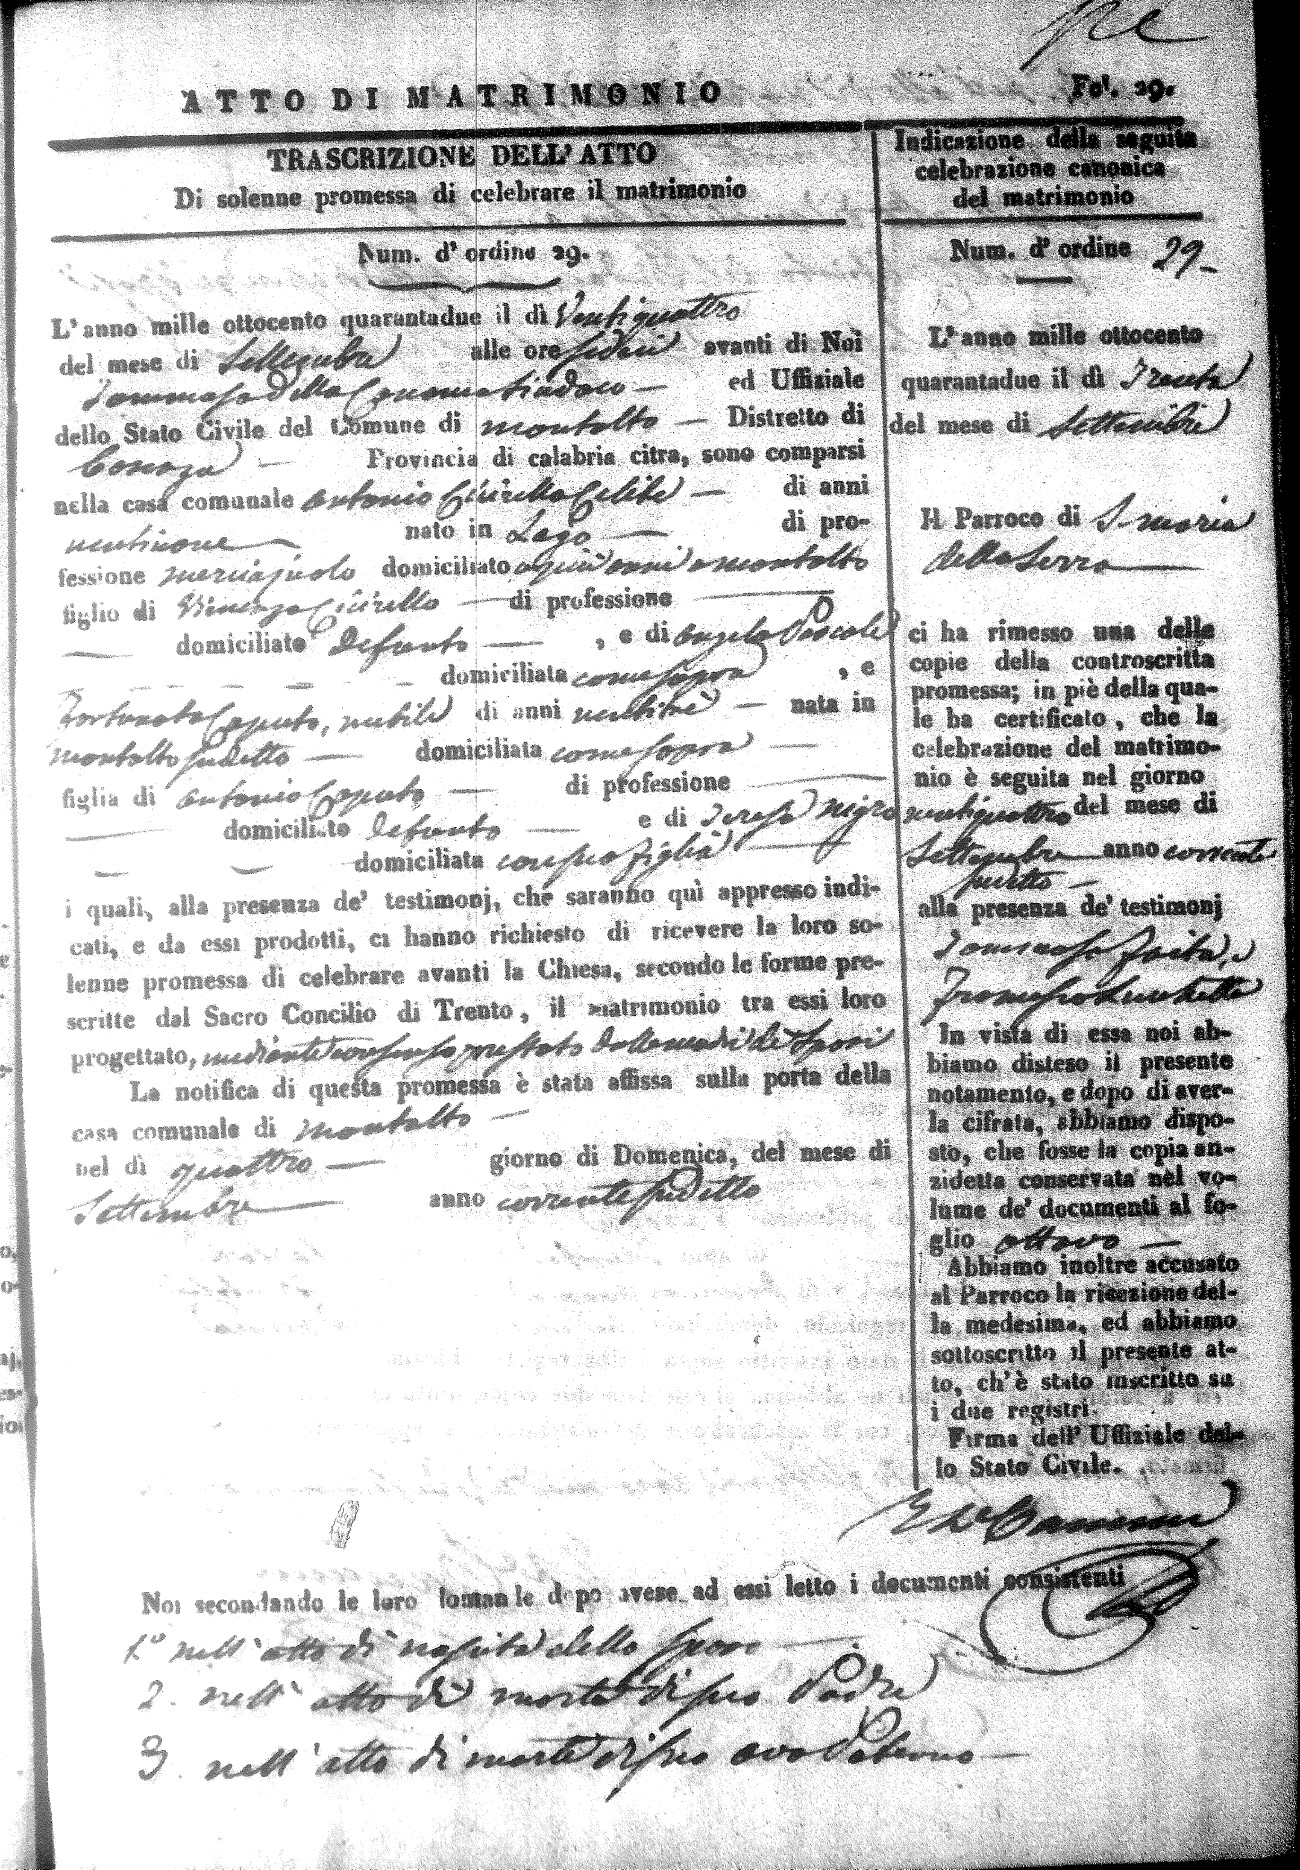 ATTO DI MATRIMONIO
Fol. 29.
TRASCRIZIONE DELL'ATTO
Di solenne promessa di celebrare il matrimonio
Num. d'ordine 29.
L'anno mille ottocento quarantadue il dì Ventiquattro
del mese di Settembre alle ore sedici avanti di Noi
Tommaso ed Uffiziale
dello Stato Civile del Comune di montalto — Distretto di
Cosenza — Provincia di calabria citra, sono comparsi
nella casa comunale Antonio Cicirello Celibe — di anni
ventinove nato in Lago — di pro-
fessione merciajuolo domiciliato montalto
figlio di Vincenzo Cicirello — di professione —
— domiciliato defunto — , e di Angela Pascale
domiciliata come sopra , e
Fortunata Caputo, nubile di anni ventitrè — nata in
montalto sudetto — domiciliata come sopra —
figlia di Antonio Caputo — di professione —
— domiciliato defunto — e di Teresa Nigro
domiciliata con sua figlia —
i quali, alla presenza de' testimonj, che saranno quì appresso indi-
cati, e da essi prodotti, ci hanno richiesto di ricevere la loro so-
lenne promessa di celebrare avanti la Chiesa, secondo le forme pre-
scritte dal Sacro Concilio di Trento, il matrimonio tra essi loro
progettato, mediante consenso prestato dalle madri de Sposi
La notifica di questa promessa è stata affissa sulla porta della
casa comunale di montalto —
nel dì quattro — giorno di Domenica, del mese di
Settembre — anno corrente sudetto
Indicazione della seguita
celebrazione canonica
del matrimonio
Num. d'ordine 29 —
L'anno mille ottocento
quarantadue il dì Trenta
del mese di Settembre
Il Parroco di S. maria
della Serra —
ci ha rimesso una delle
copie della controscritta
promessa; in piè della qua-
le ha certificato, che la
celebrazione del matrimo-
nio è seguita nel giorno
ventiquattro del mese di
Settembre anno corrente
sudetto —
alla presenza de' testimonj
Tommaso e
Francesco
In vista di essa noi ab-
biamo disteso il presente
notamento, e dopo di aver-
la cifrata, abbiamo dispo-
sto, che fosse la copia an-
zidetta conservata nel vo-
lume de' documenti al fo-
glio ottavo —
Abbiamo inoltre accusato
al Parroco la ricezione del-
la medesima, ed abbiamo
sottoscritto il presente at-
to, ch'è stato inscritto su
i due registri.
Firma dell' Uffiziale del-
lo Stato Civile.
Noi secondando le loro domande dopo avere ad essi letto i documenti consistenti
1.° nell'atto di nascita dello sposo —
2. nell'atto di morte di suo Padre
3. nell'atto di morte di suo avo Paterno —